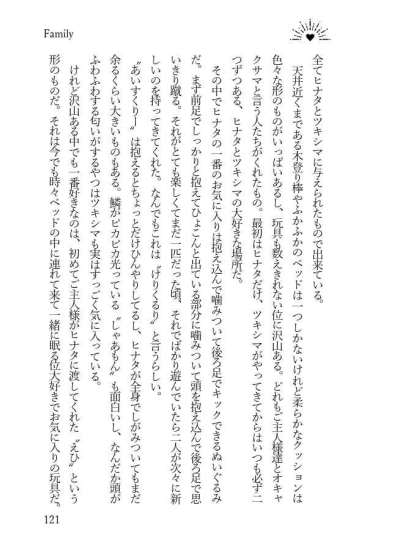 Family
全てヒナタとツキシマに与えられたもので出来ている。
天井近くまである木登り棒やふかふかのベッドは一つしかないけれど柔らかなクッションは
色々な形のものがいっぱいあるし、玩具も数えきれない位に沢山ある。どれもご主人様達とオキャ
クサマと言う人たちがくれたもの。最初はヒナタだけ、ツキシマがやってきてからはいつも必ず二
つずつある、ヒナタとツキシマの大好きな場所だ。
その中でヒナタの一番のお気に入りは抱え込んで噛みついて後ろ足でキックできるぬいぐるみ
だ。まず前足でしっかりと抱えてひょこんと出ている部分に噛みついて頭を抱え込んで後ろ足で思
いきり蹴る。それがとても楽しくてまだ一匹だった頃、それでばかり遊んでいたら二人が次々に新
しいのを持ってきてくれた。なんでもこれは〝けりくるり〟と言うらしい。
〝あいすくりー〟は抱えるとちょっとだけひんやりしてるし、ヒナタが全身でしがみついてもまだ
余るくらい大きいものもある。鱗がピカピカ光っている〝しゃあもん〟も面白いし、なんだか頭が
ふわふわする匂いがするやつはツキシマも実はすっごく気に入っている。
けれど沢山ある中でも一番好きなのは、初めてご主人様がヒナタに渡してくれた〝えひ〟という
形のものだ。それは今でも時々ベッドの中に連れて来て一緒に眠る位大好きでお気に入りの玩具だ。
121